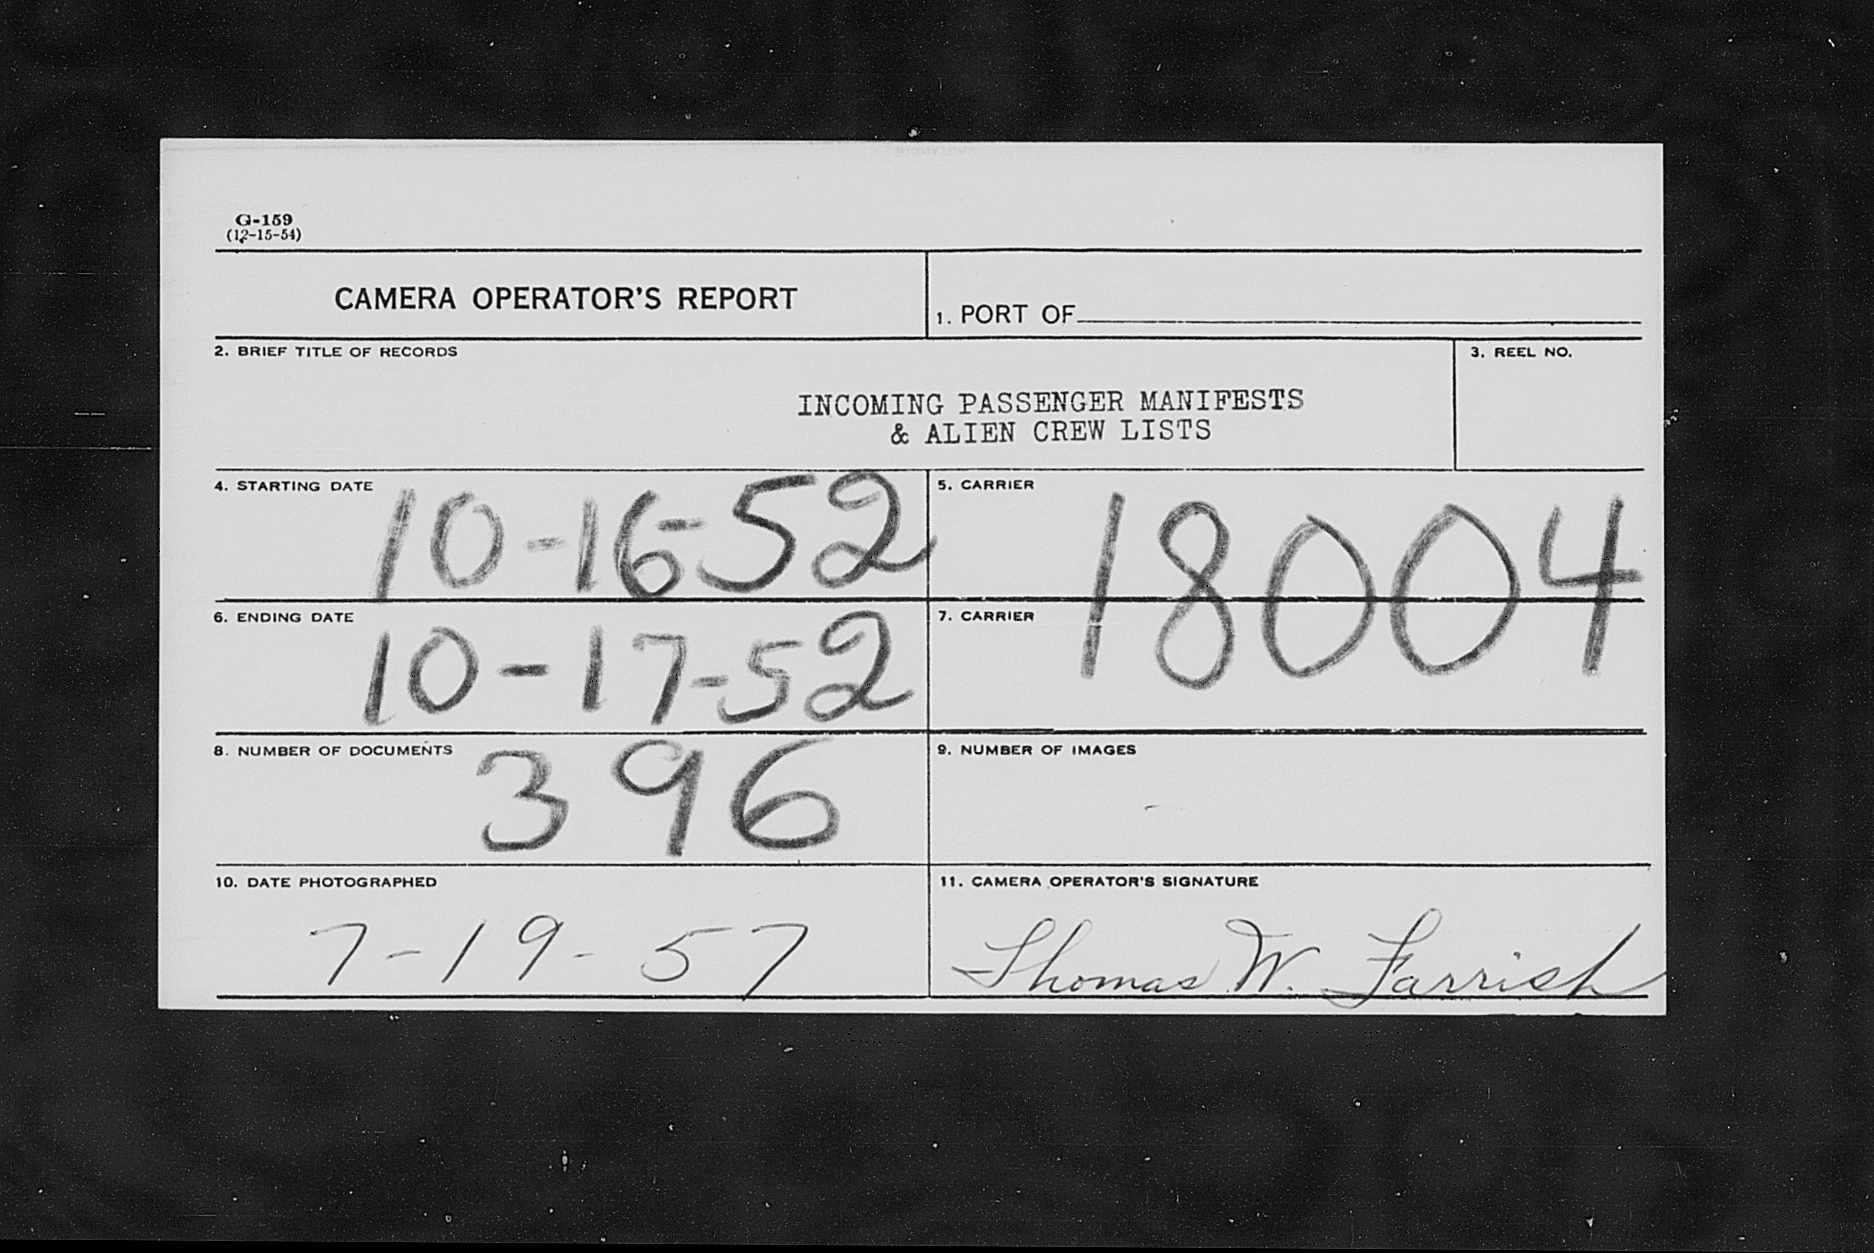 G-159
(12-15-54)
CAMERA OPERATOR'S REPORT
1. PORT OF
2. BRIEF TITLE OF RECORDS
3. REEL NO.
INCOMING PASSENGER MANIFESTS
& ALIEN CREW LISTS
4. STARTING DATE
10-16-52
5. CARRIER
18004
6. ENDING DATE
10-17-52
7. CARRIER
8. NUMBER OF DOCUMENTS
396
9. NUMBER OF IMAGES
10. DATE PHOTOGRAPHED
7-19-57
11. CAMERA OPERATOR'S SIGNATURE
Thomas W. Farrish